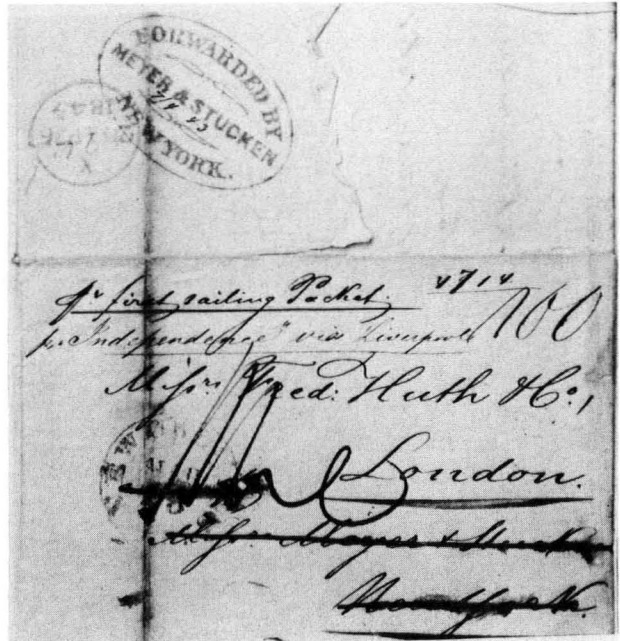 FORWARDED BY
MEYER & STUCKEN
NEW YORK.
pr first sailing Packet.
pr "Independence" via Liverpool
100
Messrs. Fred: Huth & Co,
London.
Messrs. Meyer & Stucken
New York.